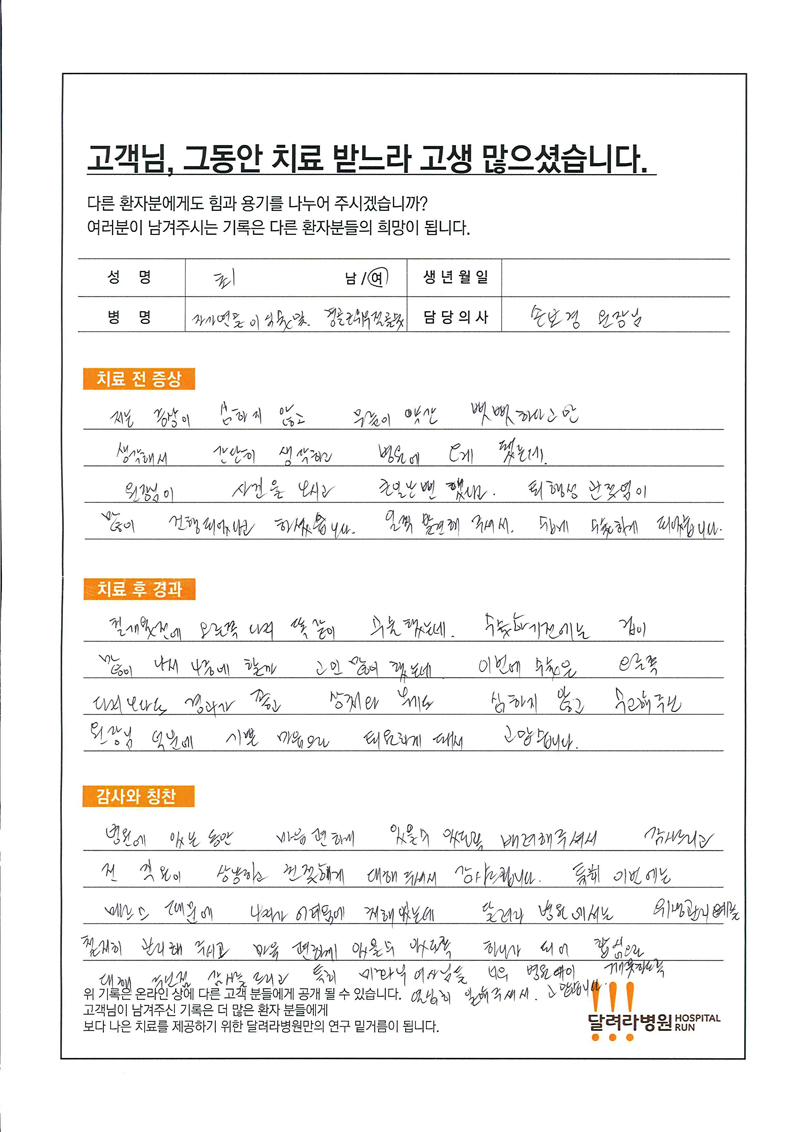 고객님, 그동안 치료 받느라 고생 많으셨습니다.
다른 환자분에게도 힘과 용기를 나누어 주시겠습니까?
여러분이 남겨주시는 기록은 다른 환자분들의 희망이 됩니다.
성 명 최 남/여 생년월일
병 명 자가연골이식술및 담당의사 손보경 원장님
치료 전 증상
저는 증상이 심하지 않고 무릎이 약간 뻣뻣하다고만
생각해서 간단히 생각하고 병원에 오게 됐는데.
원장님이 사진을 보시고 큰일날뻔 했다고. 퇴행성 관절염이
많이 진행되었다고 하셨습니다. 일찍 발견해 주셔서. 수술하게 되었습니다.
치료 후 경과
오른쪽 다리 똑같이 수술했는데. 수술하기전에는 겁이
많이 나서 나중에 할까 고민 많이 했는데 이번에 수술은
다리보다도 경과가 좋고 심하지 않고 수고해주신
원장님 덕분에 기쁜 마음으로 퇴원하게 돼서 고맙습니다.
감사와 칭찬
병원에 있는 동안 마음 편하게 있을수 있도록 배려해주셔서 감사드리고
전 직원이 상냥하고 친절하게 대해 주셔서 감사드립니다. 특히 이번에는
메르스 때문에 나라가 어려움에 처해있는데 달려라 병원에서는 위생관리에
철저히 관리해 주시고 마음 편하게 있을수 있도록 하나가 되어
대해 주신점 감사를 드리고 특히 여사님들 병원에이 깨끗하도록
위 기록은 온라인 상에 다른 고객 분들에게 공개 될 수 있습니다. 열심히 일해주셔서. 고맙습니다.
고객님이 남겨주신 기록은 더 많은 환자 분들에게
보다 나은 치료를 제공하기 위한 달려라병원만의 연구 밑거름이 됩니다.
달려라병원 HOSPITAL RUN